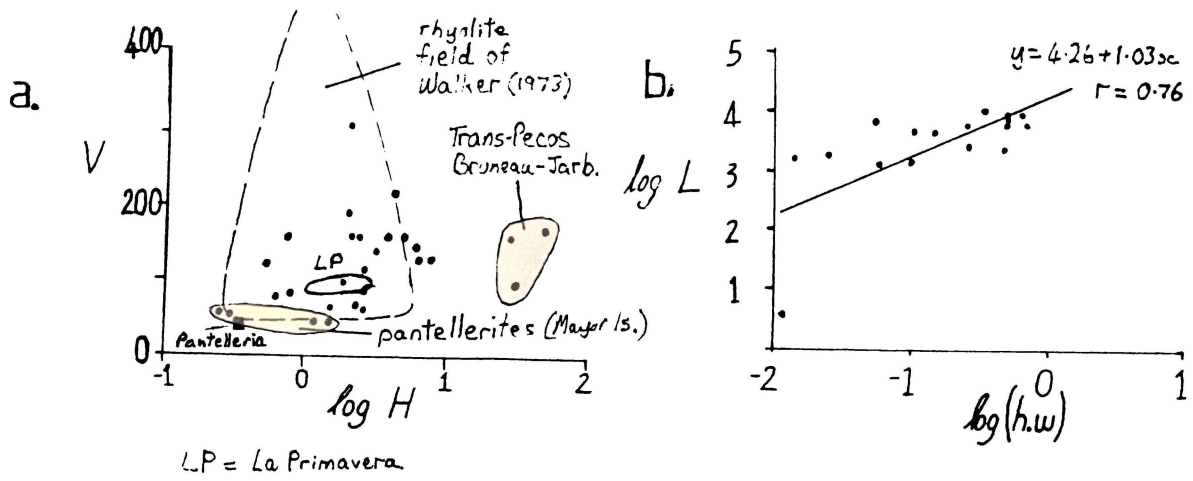 a.
V
400
200
0
-1
0
1
2
log H
rhyolite
field of
Walker (1973)
Trans-Pecos
Bruneau-Jarb.
LP
Pantelleria
pantellerites (Mayor Is.)
LP = La Primavera
b.
log L
5
4
3
2
1
-2
-1
0
1
log(h.w)
y = 4.26+1.03x
r = 0.76